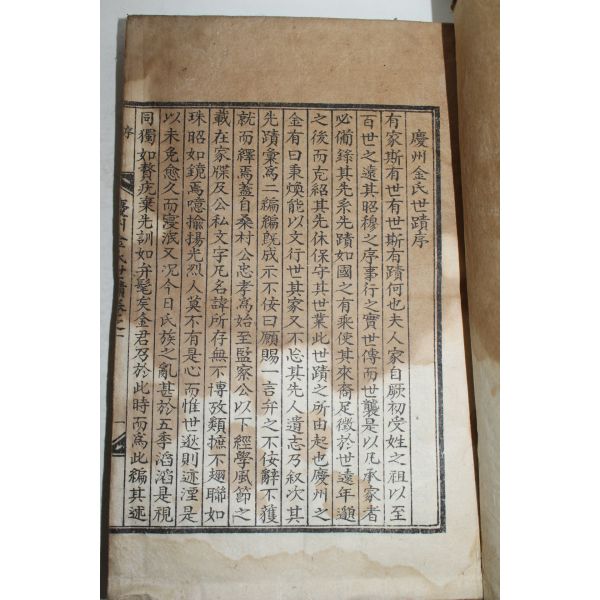 慶州金氏世蹟序
有家斯有世有世斯有蹟何也夫人家自厥初受姓之祖以至
百世之遠其昭穆之序事行之實世傳而世襲是以凡承家者
必備錄其先系先蹟如國之有乘使其來裔足徵於世遠年邈
之後而克紹其先休保守其世業此世蹟之所由起也慶州之
金有曰秉煥能以文行世其家又不忘其先人遺志乃叙次其
先蹟彙爲二編編旣成示不佞曰願賜一言弁之不佞辭不獲
就而繹焉盖自桑村公忠孝爲始至監察公以下經學風節之
載在家牒及公私文字凡名諱所存無不博攷類摭不趐聯如
珠昭如鏡焉噫揄揚光烈人莫不有是心而惟世逖則迹湮是
以未免愈久而寖泯又况今日氏族之亂甚於五季滔滔是視
同獨如贅疣棄先訓如弁髦矣金君乃於此時而爲此編其述
慶州金氏世蹟卷之一
序
一